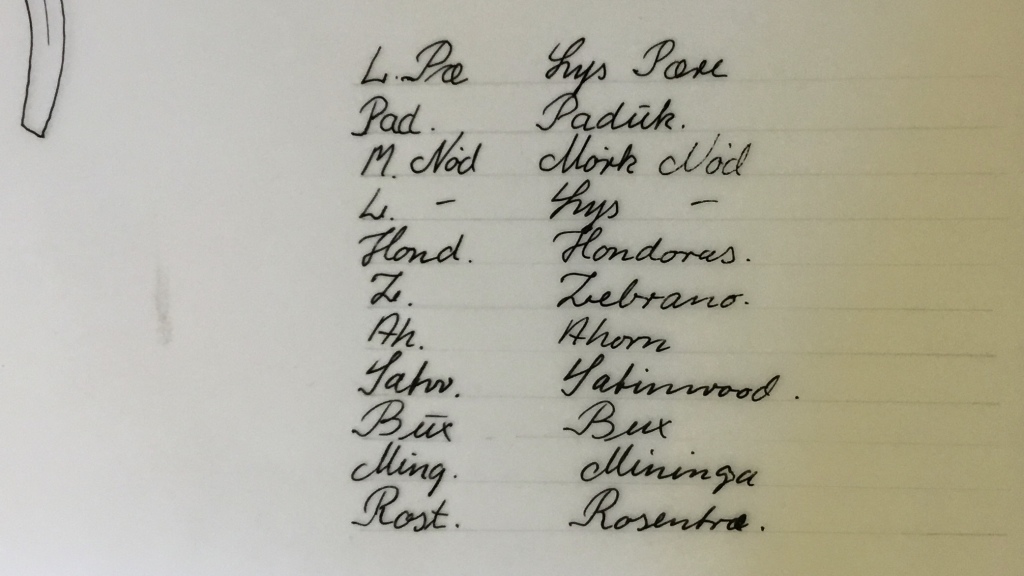 L. Pæ Lys Pære
Pad. Paduk.
M. Nød Mørk Nød
L. - Lys -
Hond. Hondoras.
Z. Zebrano.
Ah. Ahorn
Satw. Satinwood.
Bux Bux
Ming. Mininga
Rost. Rosentræ.